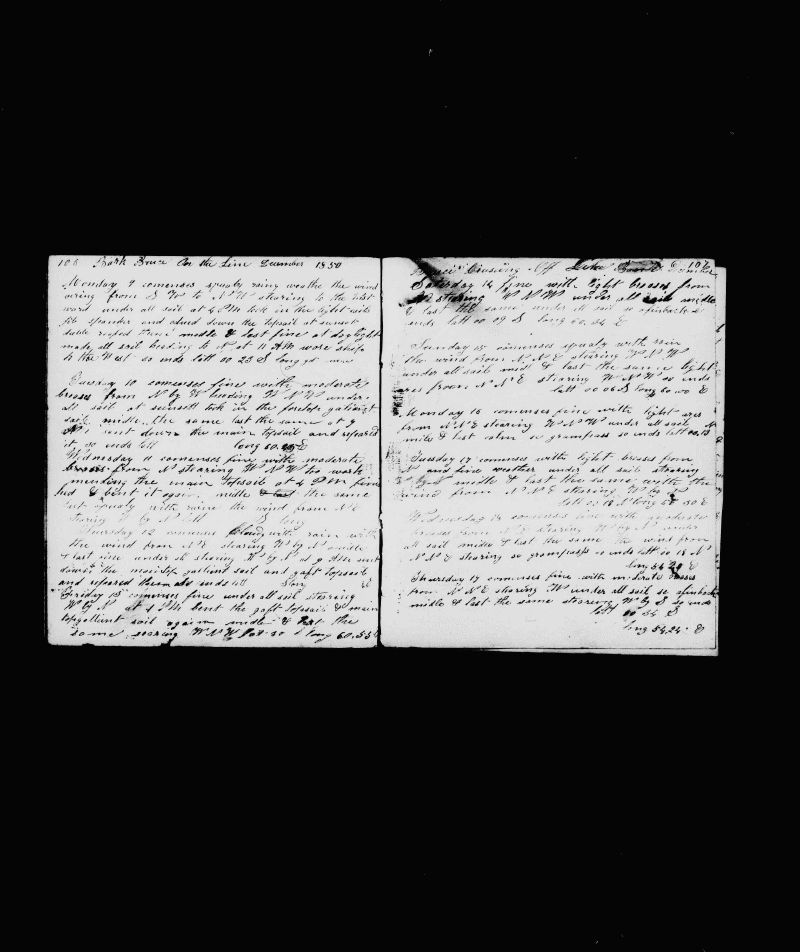 106 Bark Bruce On the Line December 1850
Monday 9 comenses squaly rainy weathe the wind
vering from S W to N W stearing to the West
ward under all sail at 4 PM took in the light sails
jib spanker and clued down the topsail at sunset
duble reefed them middle & last fine at daylight
made all sail heading to N at 11 AM wore ship
to the West so ends latt 00 23 S long
Tuesday 10 comenses fine with moderate
breses from N by W heading W N W under
all sail at sunsett took in the foretop galient
sail middle the same last the same at 9
sent down the main topsail and repaired
it so ends latt long 60 E
Wednesday 11 comenses fine with moderate
breses from N stearing W N W too work
mending the main topsail at 4 PM fin
hed & bent it again midle & last the same
but squaly with raine the wind from N E
stearing W by N latt S long
Thursday 12 comenses cloudy with rain with
the wind from N E stearing W by N middle
& last fine under all stearing W by N at 9 AM sent
down the main top gallent sail and gaft topsail
and repared them so ends latt long E
Friday 13 comenses fine under all sail stearing
W by N at 4 PM bent the gaft topsail & main
topgallent sail again midle & last the
same stearing W N W lat 30 S long 60.55 E
107
Bruce Cruising Off December
Saturday 14 fine with light breses from
N E stearing W N W under all sail midle
& last the same under all sail so
ends latt 00 09 S long 60.34 E
Sunday 15 comenses squaly with rain
the wind from N N E stearing W N W
under all sail midl & last the same light
ares from N N E stearing W N W so ends
latt 00 06 S long 60 00 E
Monday 16 comenses fine with light ares
from N N E stearing W N W under all sail
midle & last so grampass so ends latt 00.13
Tuesday 17 comenses with light breses from
N and fine weather under all sail stearing
W by N midle & last the same with the
wind from N N E stearing W by N
latt 00 18 N long 58 30 E
Wednesday 18 comenses fine with moderate
breses from N E stearing W by N under
all sail midle & last the same the wind from
N N E stearing so grampass so ends latt 00 18 N
long 56 29 E
Thursday 19 comenses fine with moderate breses
from N N E stearing W under all sail so
midle & last the same stearing W by S so ends
latt 00 34 S
long 54,24 E